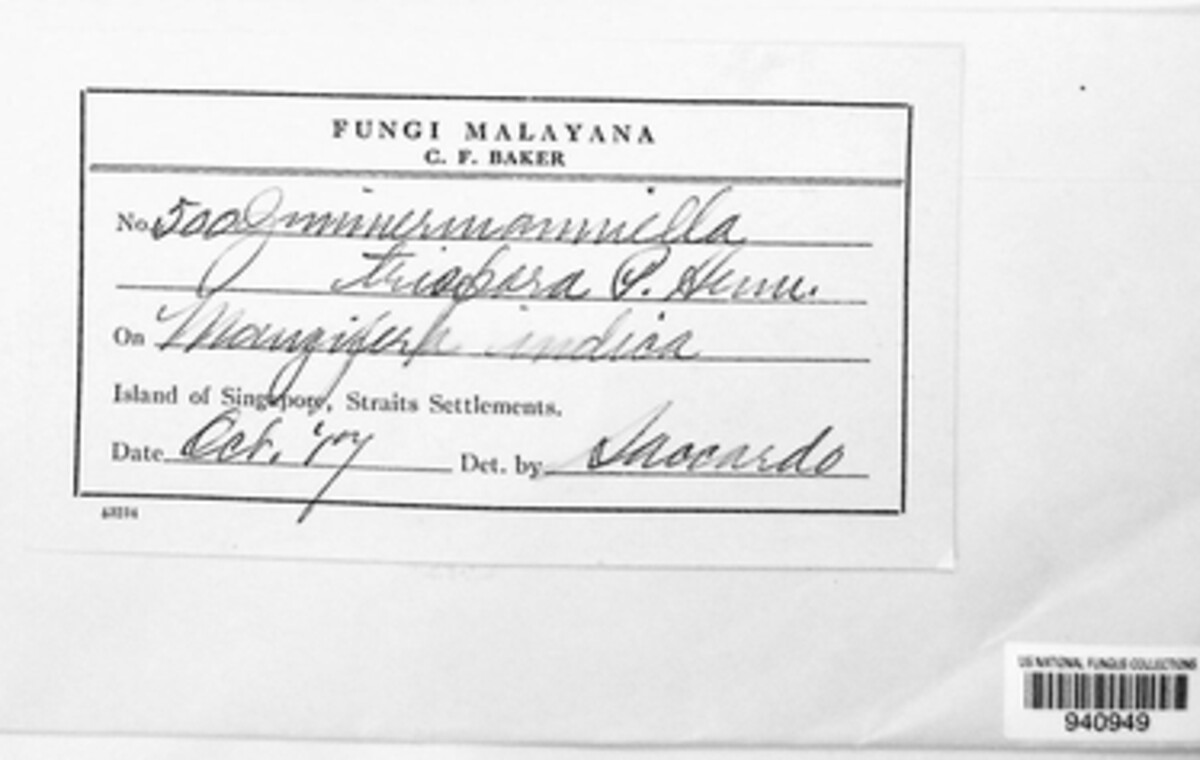 FUNGI MALAYANA
C. F. BAKER
No. 500 Zimmermanniella
trispora P. Henn.
On Mangifera indica
Island of Singapore, Straits Settlements.
Date Oct. '17 Det. by Saccardo
US NATIONAL FUNGUS COLLECTIONS
940949